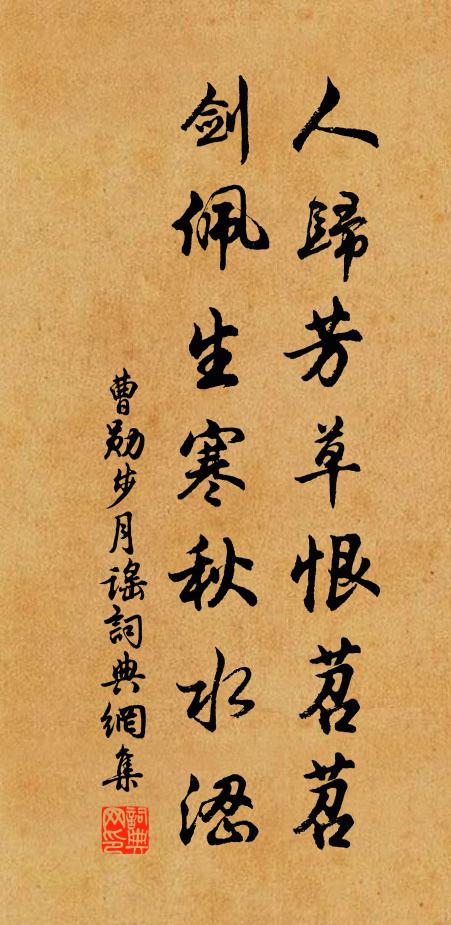 人歸芳草恨苕苕
剑佩生寒秋水
曹勛步月謠詞典網集
詞典网印